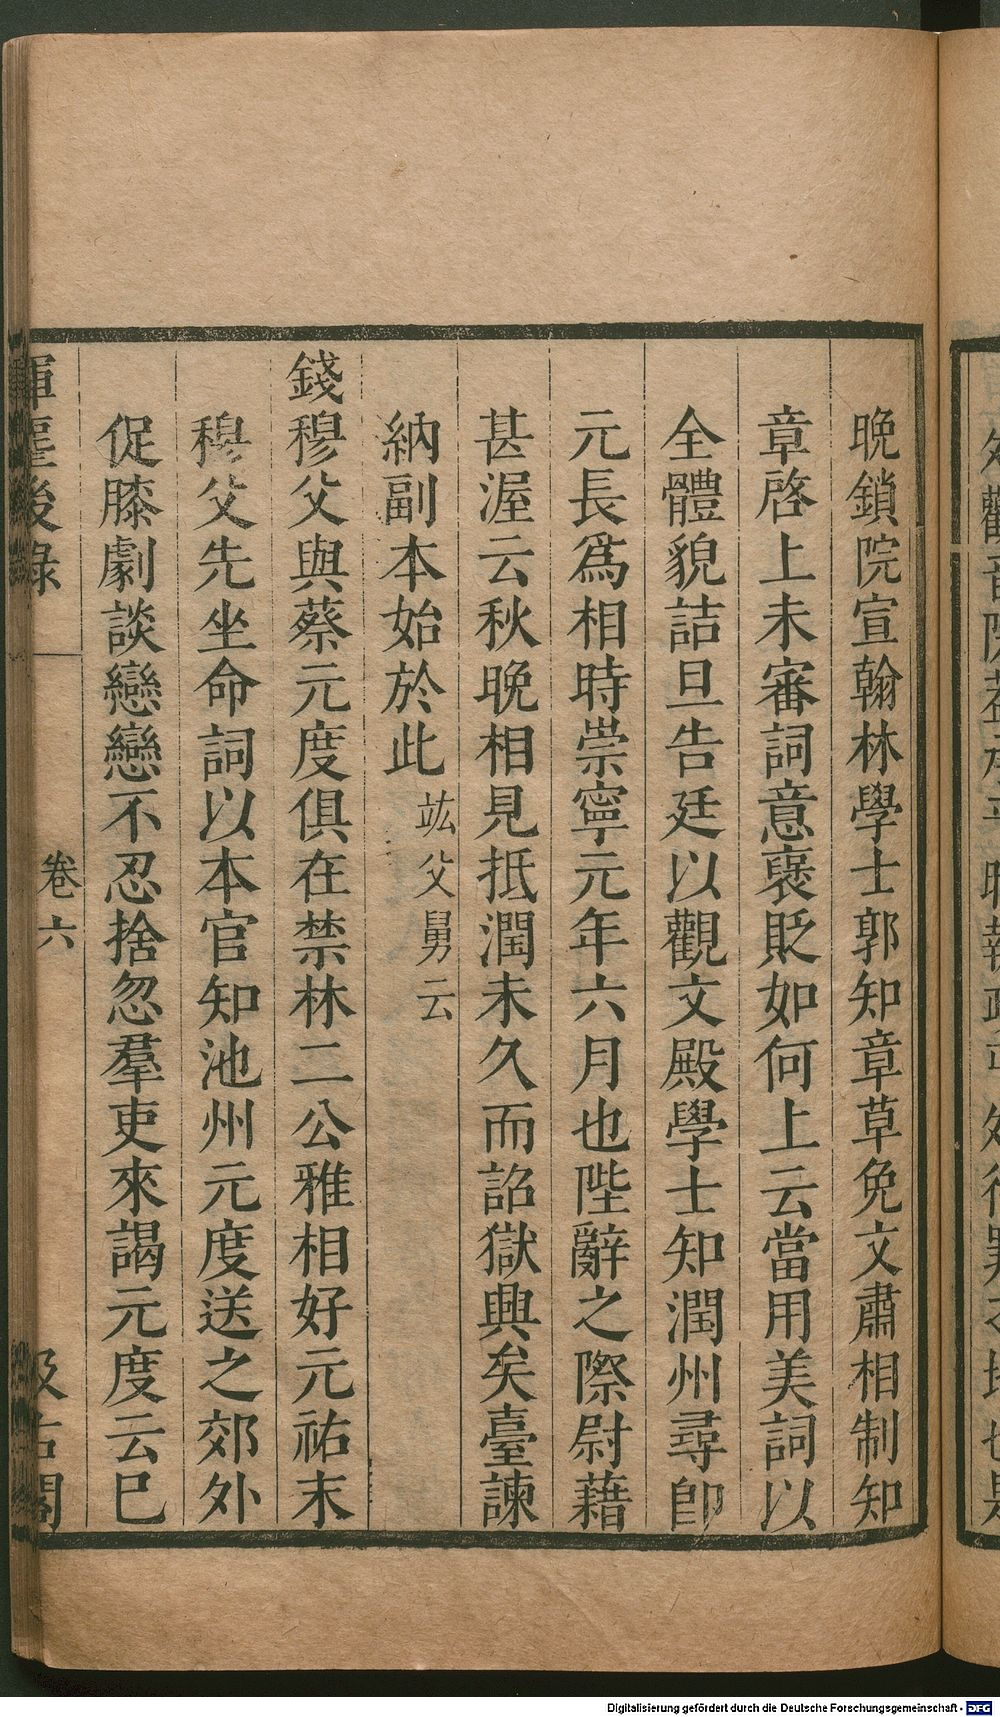 晚鎖院宣翰林學士郭知章草免文肅相制知
章啓上未審詞意褒貶如何上云當用美詞以
全體貌詰旦告廷以觀文殿學士知潤州尋卽
元長爲相時崇寧元年六月也陛辭之際尉藉
甚渥云秋晚相見抵潤未久而詔獄興矣臺諫
納副本始於此 竑父舅云
錢穆父與蔡元度俱在禁林二公雅相好元祐末
穆父先坐命詞以本官知池州元度送之郊外
促膝劇談戀戀不忍捨忽羣吏來謁元度云巳
揮麈後錄 卷六 汲古閣
Digitalisierung gefördert durch die Deutsche Forschungsgemeinschaft - DFG